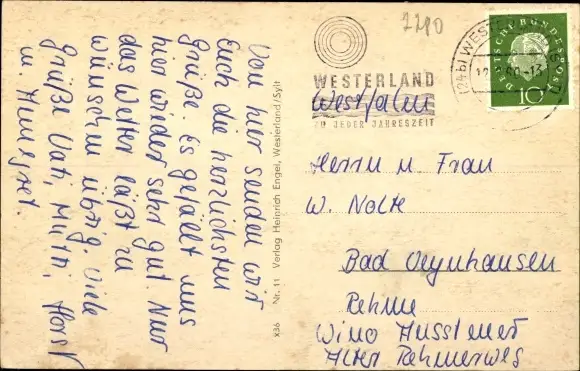 Von hier senden wir
Euch die herzlichsten
Grüße. Es gefällt uns
hier wieder sehr gut. Nur
das Wetter läßt zu
wünschen übrig. Viele
Grüße Vati, Mutti, Horst
u. Annegret.
X36 Nr. 11 Verlag Heinrich Engel, Westerland/Sylt
2280
WESTERLAND
ZU JEDER JAHRESZEIT
(24b) WESTER
60-13
DEUTSCHE BUNDESPOST
10
Westfalen
Herrn u. Frau
W. Nolte
Bad Oeynhausen
Rehme
Alter Rehmerweg